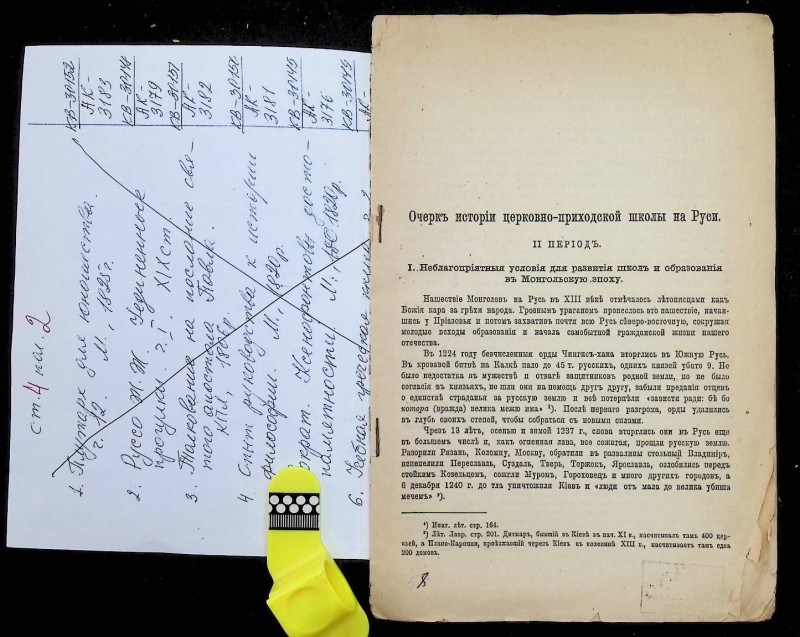 ст. 4 пол. 2
1. Плутарх для юношества.
ч. 12. М., 1825г.
КВ-30152
АК-
3183
2. Руссо Ж.Ж. Уединенные
прогулки. ?. - XIX ст.
АК-
3179
3 Толкование на послание свя-
того апостола Павла.
1805г.
КВ-30151
АК-
3182
4. Опыт руководства к истории
философии. М., 1820г.
КВ-30150
АК-
3181
Ксенофонтовы досто-
памятности. М., 1820г.
КВ-30145
АК-
3176
6. Полная греческая
КВ-30149
АК-
Очеркъ исторіи церковно-приходской школы на Руси.
II ПЕРІОДЪ.
I. Неблагопріятныя условія для развитія школъ и образованія
въ Монгольскую эпоху.
Нашествіе Монголовъ на Русь въ XIII вѣкѣ отмѣчалось лѣтописцами какъ
Божія кара за грѣхи народа. Грознымъ ураганомъ пронеслось это нашествіе, начав-
шись у Пріазовья и потомъ захвативъ почти всю Русь сѣверо-восточную, сокрушая
молодые всходы образованія и начала самобытной гражданской жизни нашего
отечества.
Въ 1224 году безчисленныя орды Чингисъ-хана вторглись въ Южную Русь.
Въ кровавой битвѣ на Калкѣ пало до 45 т. русскихъ, однихъ князей убито 9. Не
было недостатка въ мужествѣ и отвагѣ защитниковъ родной земли, но не было
согласія въ князьяхъ, не шли они на помощь другъ другу, забыли преданія отцевъ
о единствѣ страданья за русскую землю и всѣ потерпѣли «зависти ради: бѣ бо
котора (вражда) велика межю има» ¹). Послѣ перваго разгрома, орды удалились
въ глубь своихъ степей, чтобы собраться съ новыми силами.
Чрезъ 13 лѣтъ, осенью и зимой 1237 г., снова вторглись они въ Русь еще
въ большемъ числѣ и, какъ огненная лава, все сожигая, прошли русскую землю.
Разорили Рязань, Коломну, Москву, обратили въ развалины стольный Владиміръ,
испепелили Переславль, Суздаль, Тверь, Торжокъ, Ярославль, озлобились передъ
стойкимъ Козельцемъ, сожгли Муромъ, Гороховецъ и много другихъ городовъ, а
6 декабря 1240 г. до тла уничтожили Кіевъ и «люди отъ мала до велика убиша
мечемъ» ²).
¹) Ипат. лѣт. стр. 164.
²) Лѣт. Лавр. стр. 201. Дитмаръ, бывшій въ Кіевѣ въ нач. XI в., насчитывалъ тамъ 400 цер-
квей, а Плано-Карпини, проѣзжавшій черезъ Кіевъ въ половинѣ XIII в., насчитываетъ тамъ едва
200 домовъ.
8